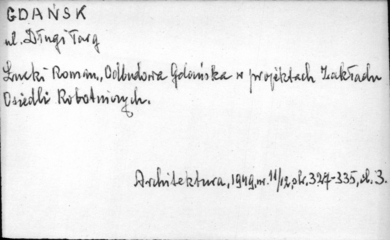 GDAŃSK
ul. Długi Targ
Łucki Roman, Odbudowa Gdańska w projektach Zakładu
Osiedli Robotniczych.
Architektura, 1949, nr. 11/12, str. 327-335, il. 3.